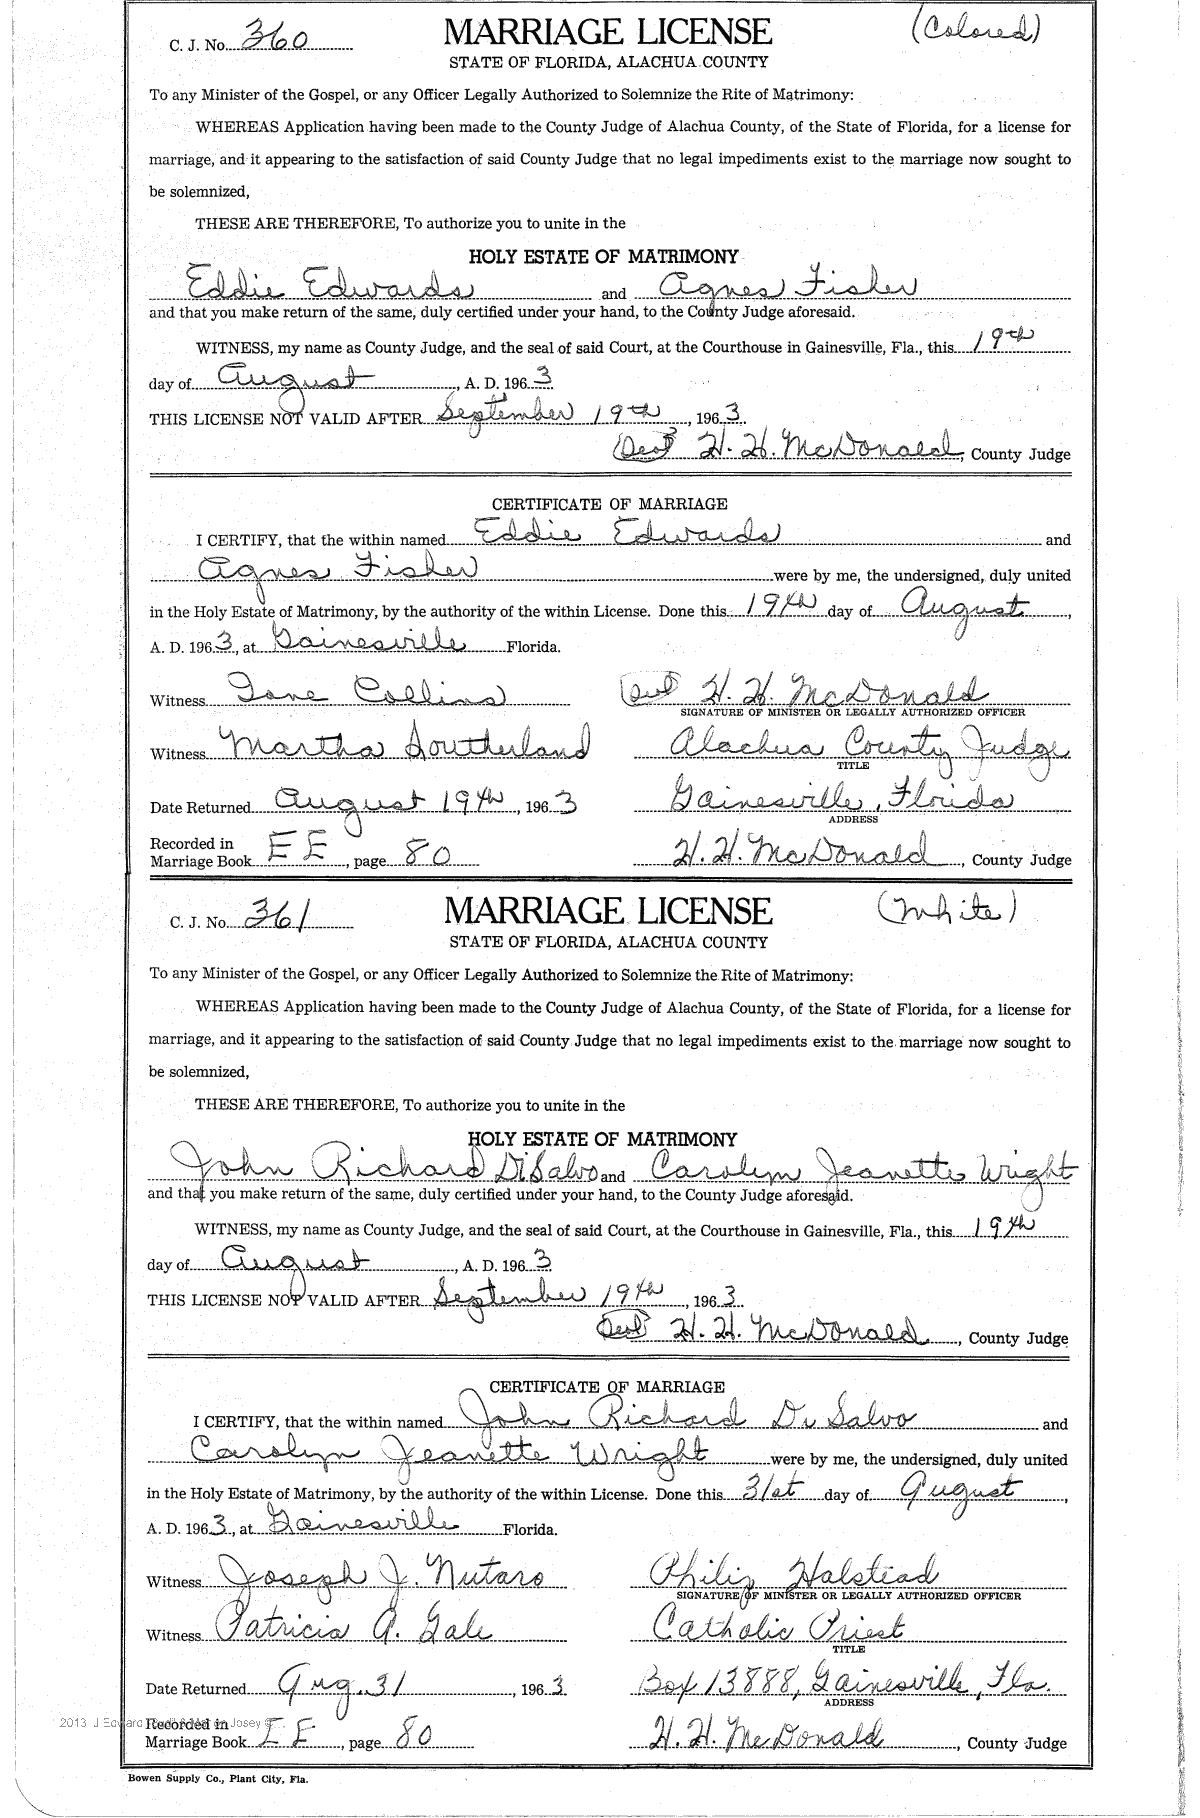 C. J. No. 360 MARRIAGE LICENSE (Colored)
STATE OF FLORIDA, ALACHUA COUNTY
To any Minister of the Gospel, or any Officer Legally Authorized to Solemnize the Rite of Matrimony:
WHEREAS Application having been made to the County Judge of Alachua County, of the State of Florida, for a license for
marriage, and it appearing to the satisfaction of said County Judge that no legal impediments exist to the marriage now sought to
be solemnized,
THESE ARE THEREFORE, To authorize you to unite in the
HOLY ESTATE OF MATRIMONY
Eddie Edwards and Agnes Fisher
and that you make return of the same, duly certified under your hand, to the County Judge aforesaid.
WITNESS, my name as County Judge, and the seal of said Court, at the Courthouse in Gainesville, Fla., this 19th
day of August, A. D. 1963
THIS LICENSE NOT VALID AFTER September 19th, 1963
(Seal) H. H. McDonald, County Judge
CERTIFICATE OF MARRIAGE
I CERTIFY, that the within named Eddie Edwards and
Agnes Fisher were by me, the undersigned, duly united
in the Holy Estate of Matrimony, by the authority of the within License. Done this 19th day of August,
A. D. 1963, at Gainesville Florida.
Witness Collins (Seal) H. H. McDonald
SIGNATURE OF MINISTER OR LEGALLY AUTHORIZED OFFICER
Witness Martha Southerland Alachua County Judge
TITLE
Date Returned August 19th, 1963 Gainesville, Florida
ADDRESS
Recorded in
Marriage Book EE, page 80 H. H. McDonald, County Judge
C. J. No. 361 MARRIAGE LICENSE (White)
STATE OF FLORIDA, ALACHUA COUNTY
To any Minister of the Gospel, or any Officer Legally Authorized to Solemnize the Rite of Matrimony:
WHEREAS Application having been made to the County Judge of Alachua County, of the State of Florida, for a license for
marriage, and it appearing to the satisfaction of said County Judge that no legal impediments exist to the marriage now sought to
be solemnized,
THESE ARE THEREFORE, To authorize you to unite in the
HOLY ESTATE OF MATRIMONY
John Richard DiSalvo and Carolyn Jeanette Wright
and that you make return of the same, duly certified under your hand, to the County Judge aforesaid.
WITNESS, my name as County Judge, and the seal of said Court, at the Courthouse in Gainesville, Fla., this 19th
day of August, A. D. 1963
THIS LICENSE NOT VALID AFTER September 19th, 1963
(Seal) H. H. McDonald, County Judge
CERTIFICATE OF MARRIAGE
I CERTIFY, that the within named John Richard DiSalvo and
Carolyn Jeanette Wright were by me, the undersigned, duly united
in the Holy Estate of Matrimony, by the authority of the within License. Done this 31st day of August,
A. D. 1963, at Gainesville Florida.
Witness Joseph J. Nutaro Philip Halstead
SIGNATURE OF MINISTER OR LEGALLY AUTHORIZED OFFICER
Witness Patricia A. Gale Catholic Priest
TITLE
Date Returned Aug. 31, 1963 Box 13888, Gainesville, Fla.
ADDRESS
2013 J Edward Josey
Recorded in
Marriage Book EE, page 80 H. H. McDonald, County Judge
Bowen Supply Co., Plant City, Fla.